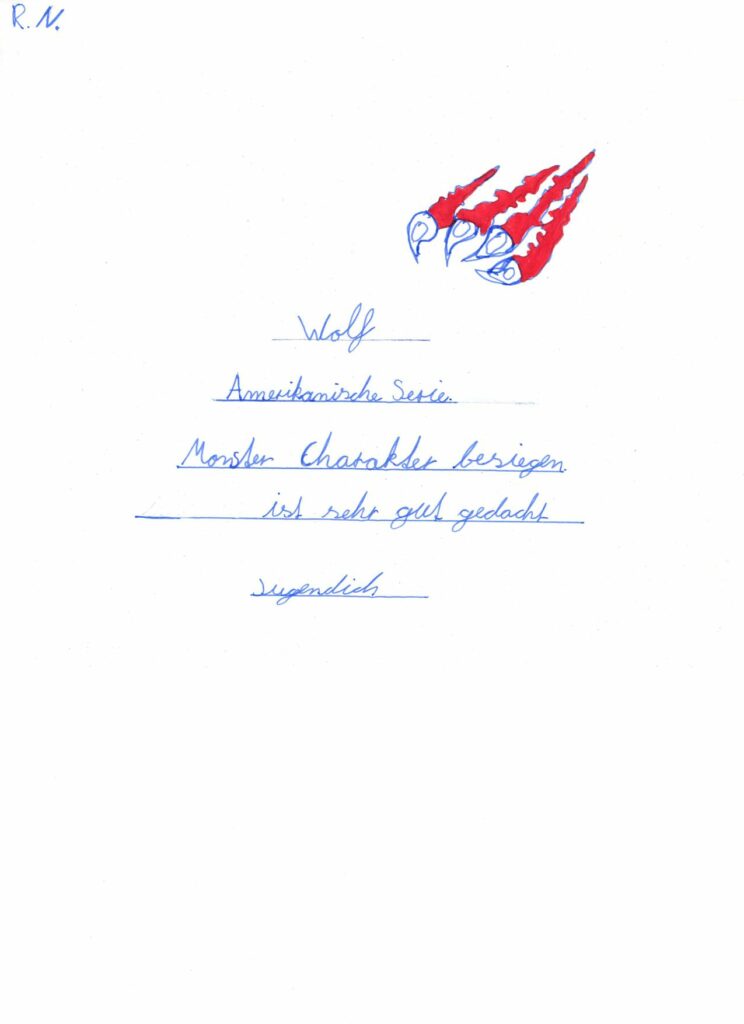 R. N.
Wolf
Amerikanische Serie.
Monster Charakter besiegen.
ist sehr gut gedacht
Jugendich